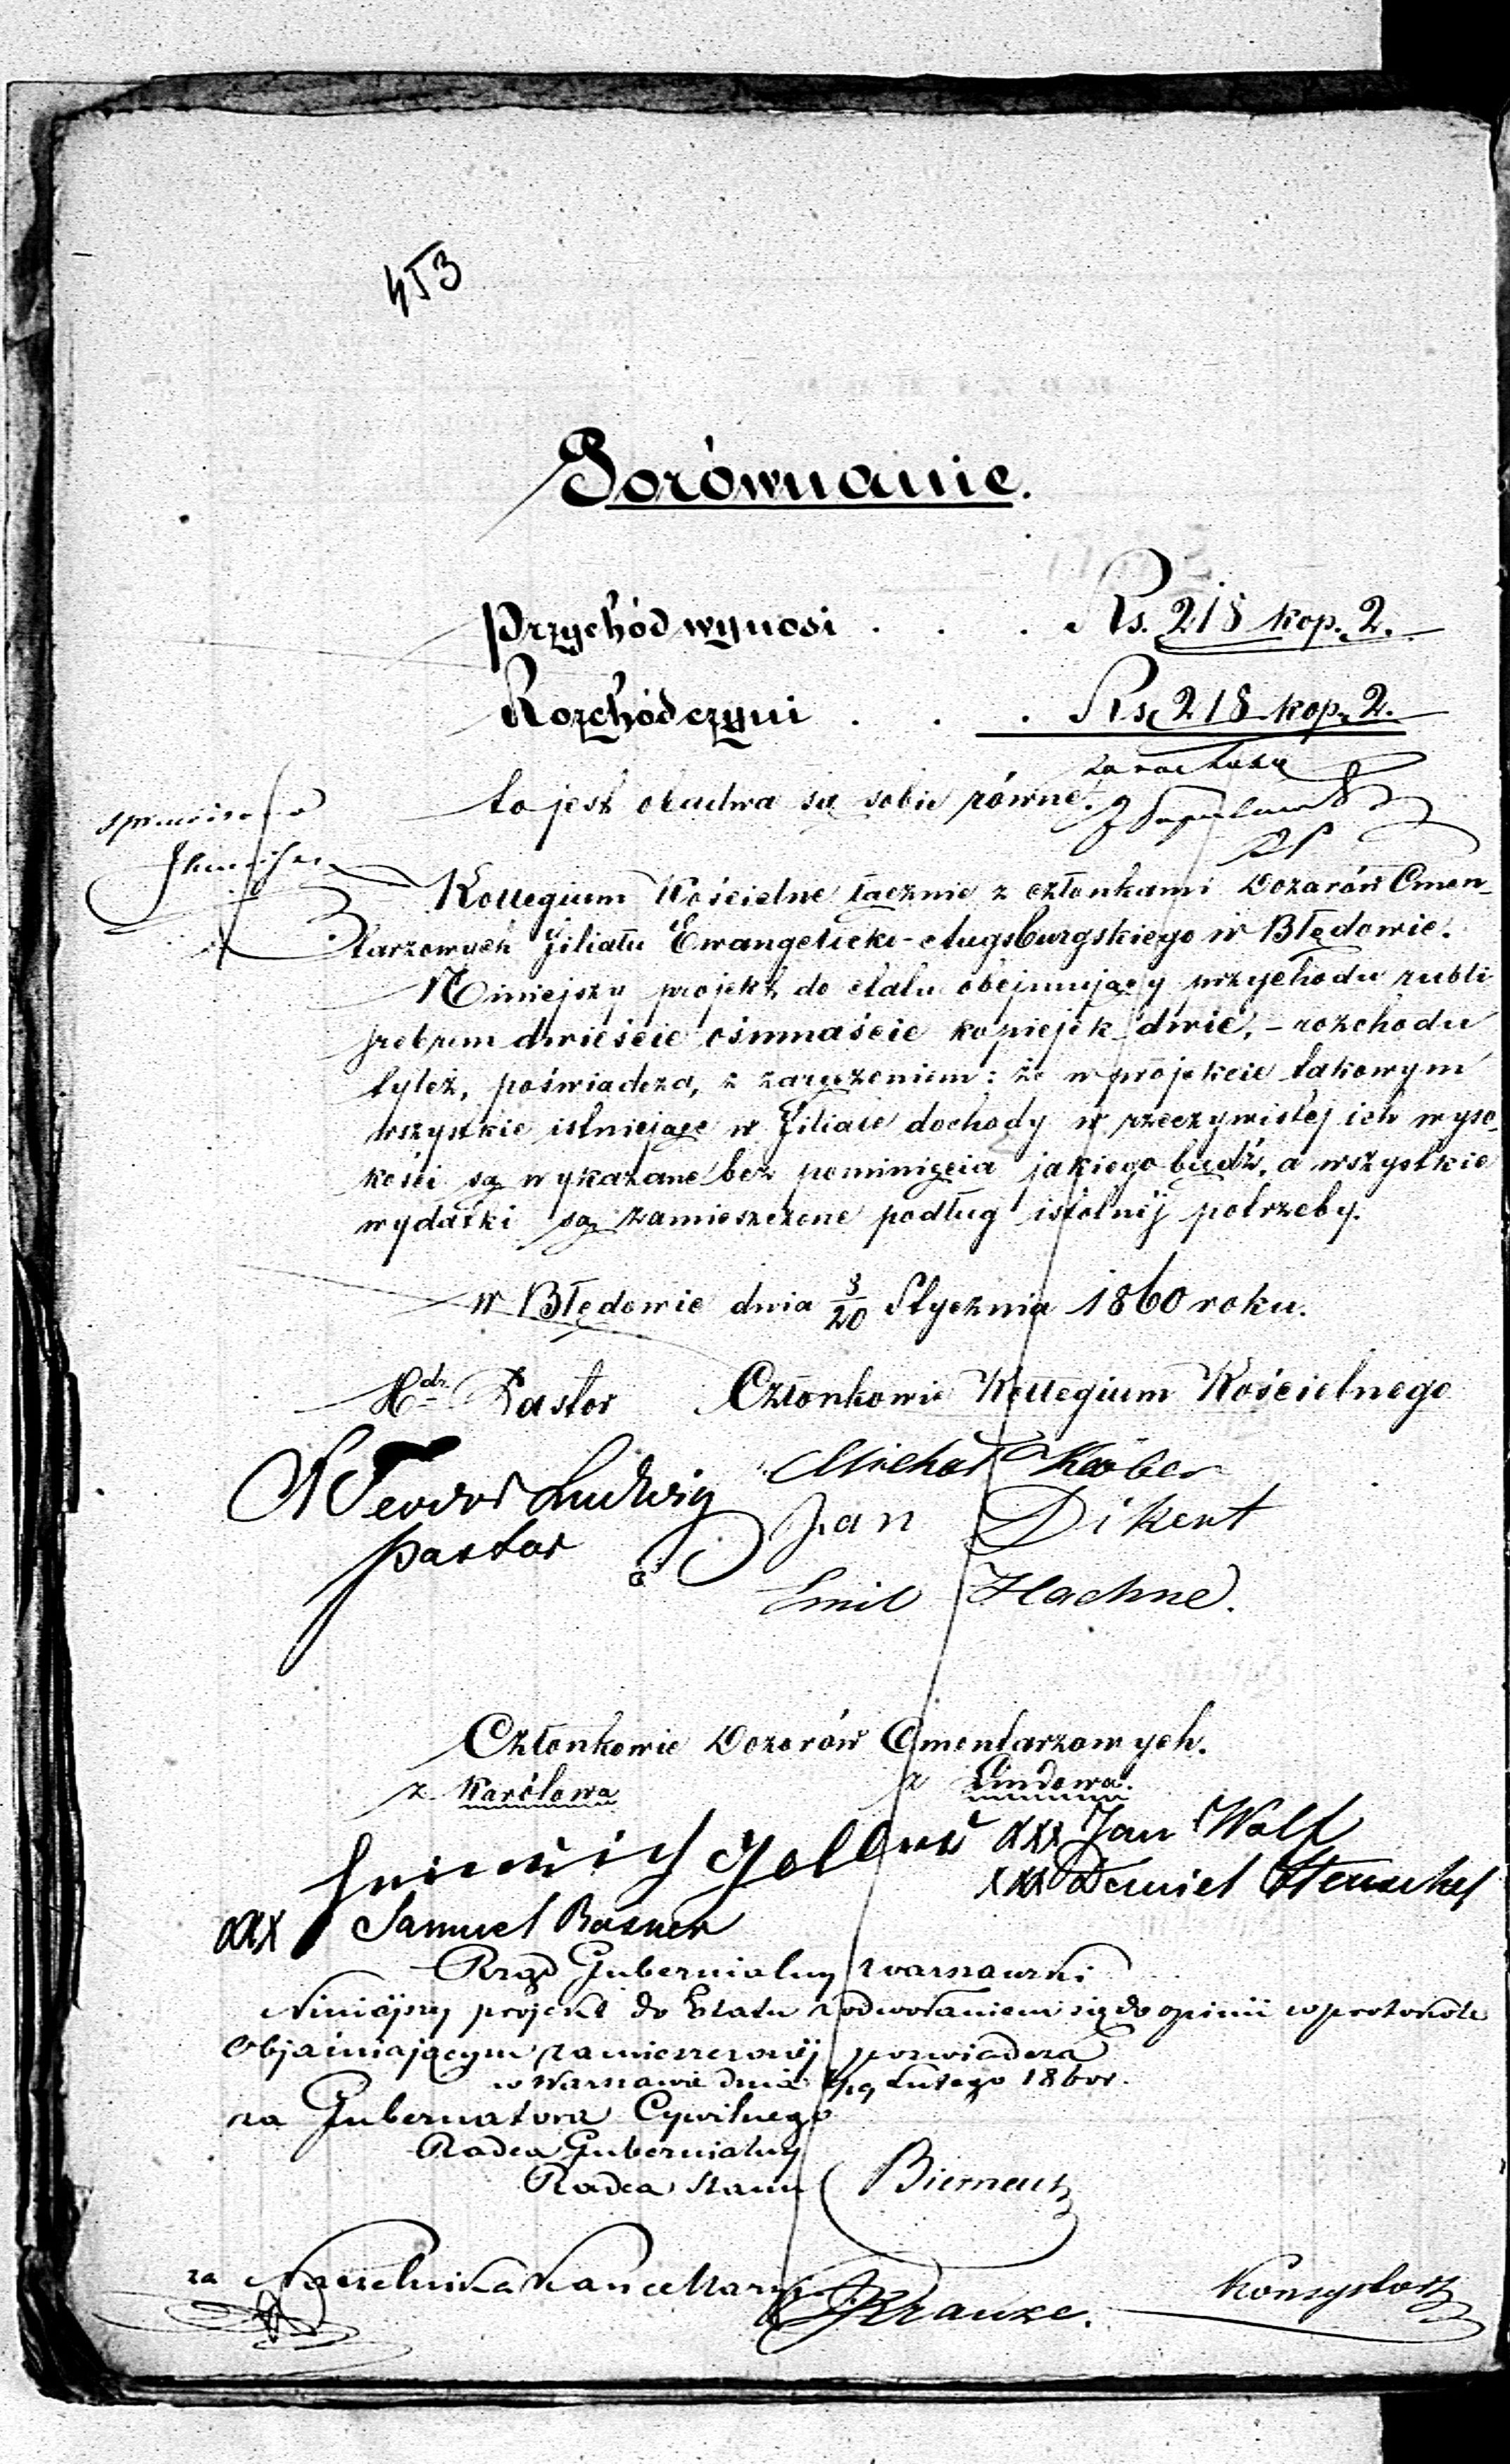 453
Porównanie.
Przychód wynosi . . . Rs. 218 kop. 2.
Rozchód czyni . . . Rs. 218 kop. 2.
za rachubę
to jest obadwa są sobie równe.
Kollegium Kościelne łącznie z członkami Dozorów Cmen-
tarzowych filiału Ewangelicko-Augsburgskiego w Błędowie.
Niniejszy projekt do etatu obejmujący przychodu rubli
srebrem dwieście ośmnaście kopiejek dwie, – rozchodu
tyleż, poświadcza, z zaręczeniem: że w projekcie takowym
wszystkie istniejące w filiale dochody w rzeczywistej ich wyso-
kości są wykazane bez pominięcia jakiego bądź, a wszystkie
wydatki są zamieszczone podług istotnéj potrzeby.
w Błędowie dnia 8/20 Stycznia 1860 roku.
Pastor Członkowie Kollegium Kościelnego
Teodor Ludwig
pastor
Michał Köber
Jan Dikert
Emil Haehne.
Członkowie Dozorów Cmentarzowych.
z Karólewa z Lindowa.
xxx Jan Wolf
xxx Daniel Henschel
xxx Samuel Basner
Rząd Gubernialny Warszawski
Niniejszy projekt do Etatu z odwołaniem się do opinii w protokóle
Objaśniającym zamieszczonéj poswiadcza
w Warszawie dnia /19 Lutego 1860 r.
za Gubernatora Cywilnego
Radca Gubernialny
Radca Stanu
za Naczelnika Kancellaryi Krauze.